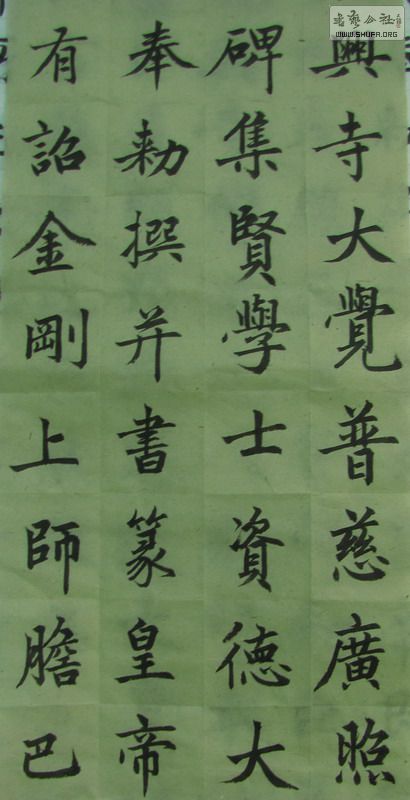 興寺大覺普慈廣照
碑集賢學士資德大
奉勅撰并書篆皇帝
有詔金剛上師膽巴
書藝公社
WWW.SHUFA.ORG